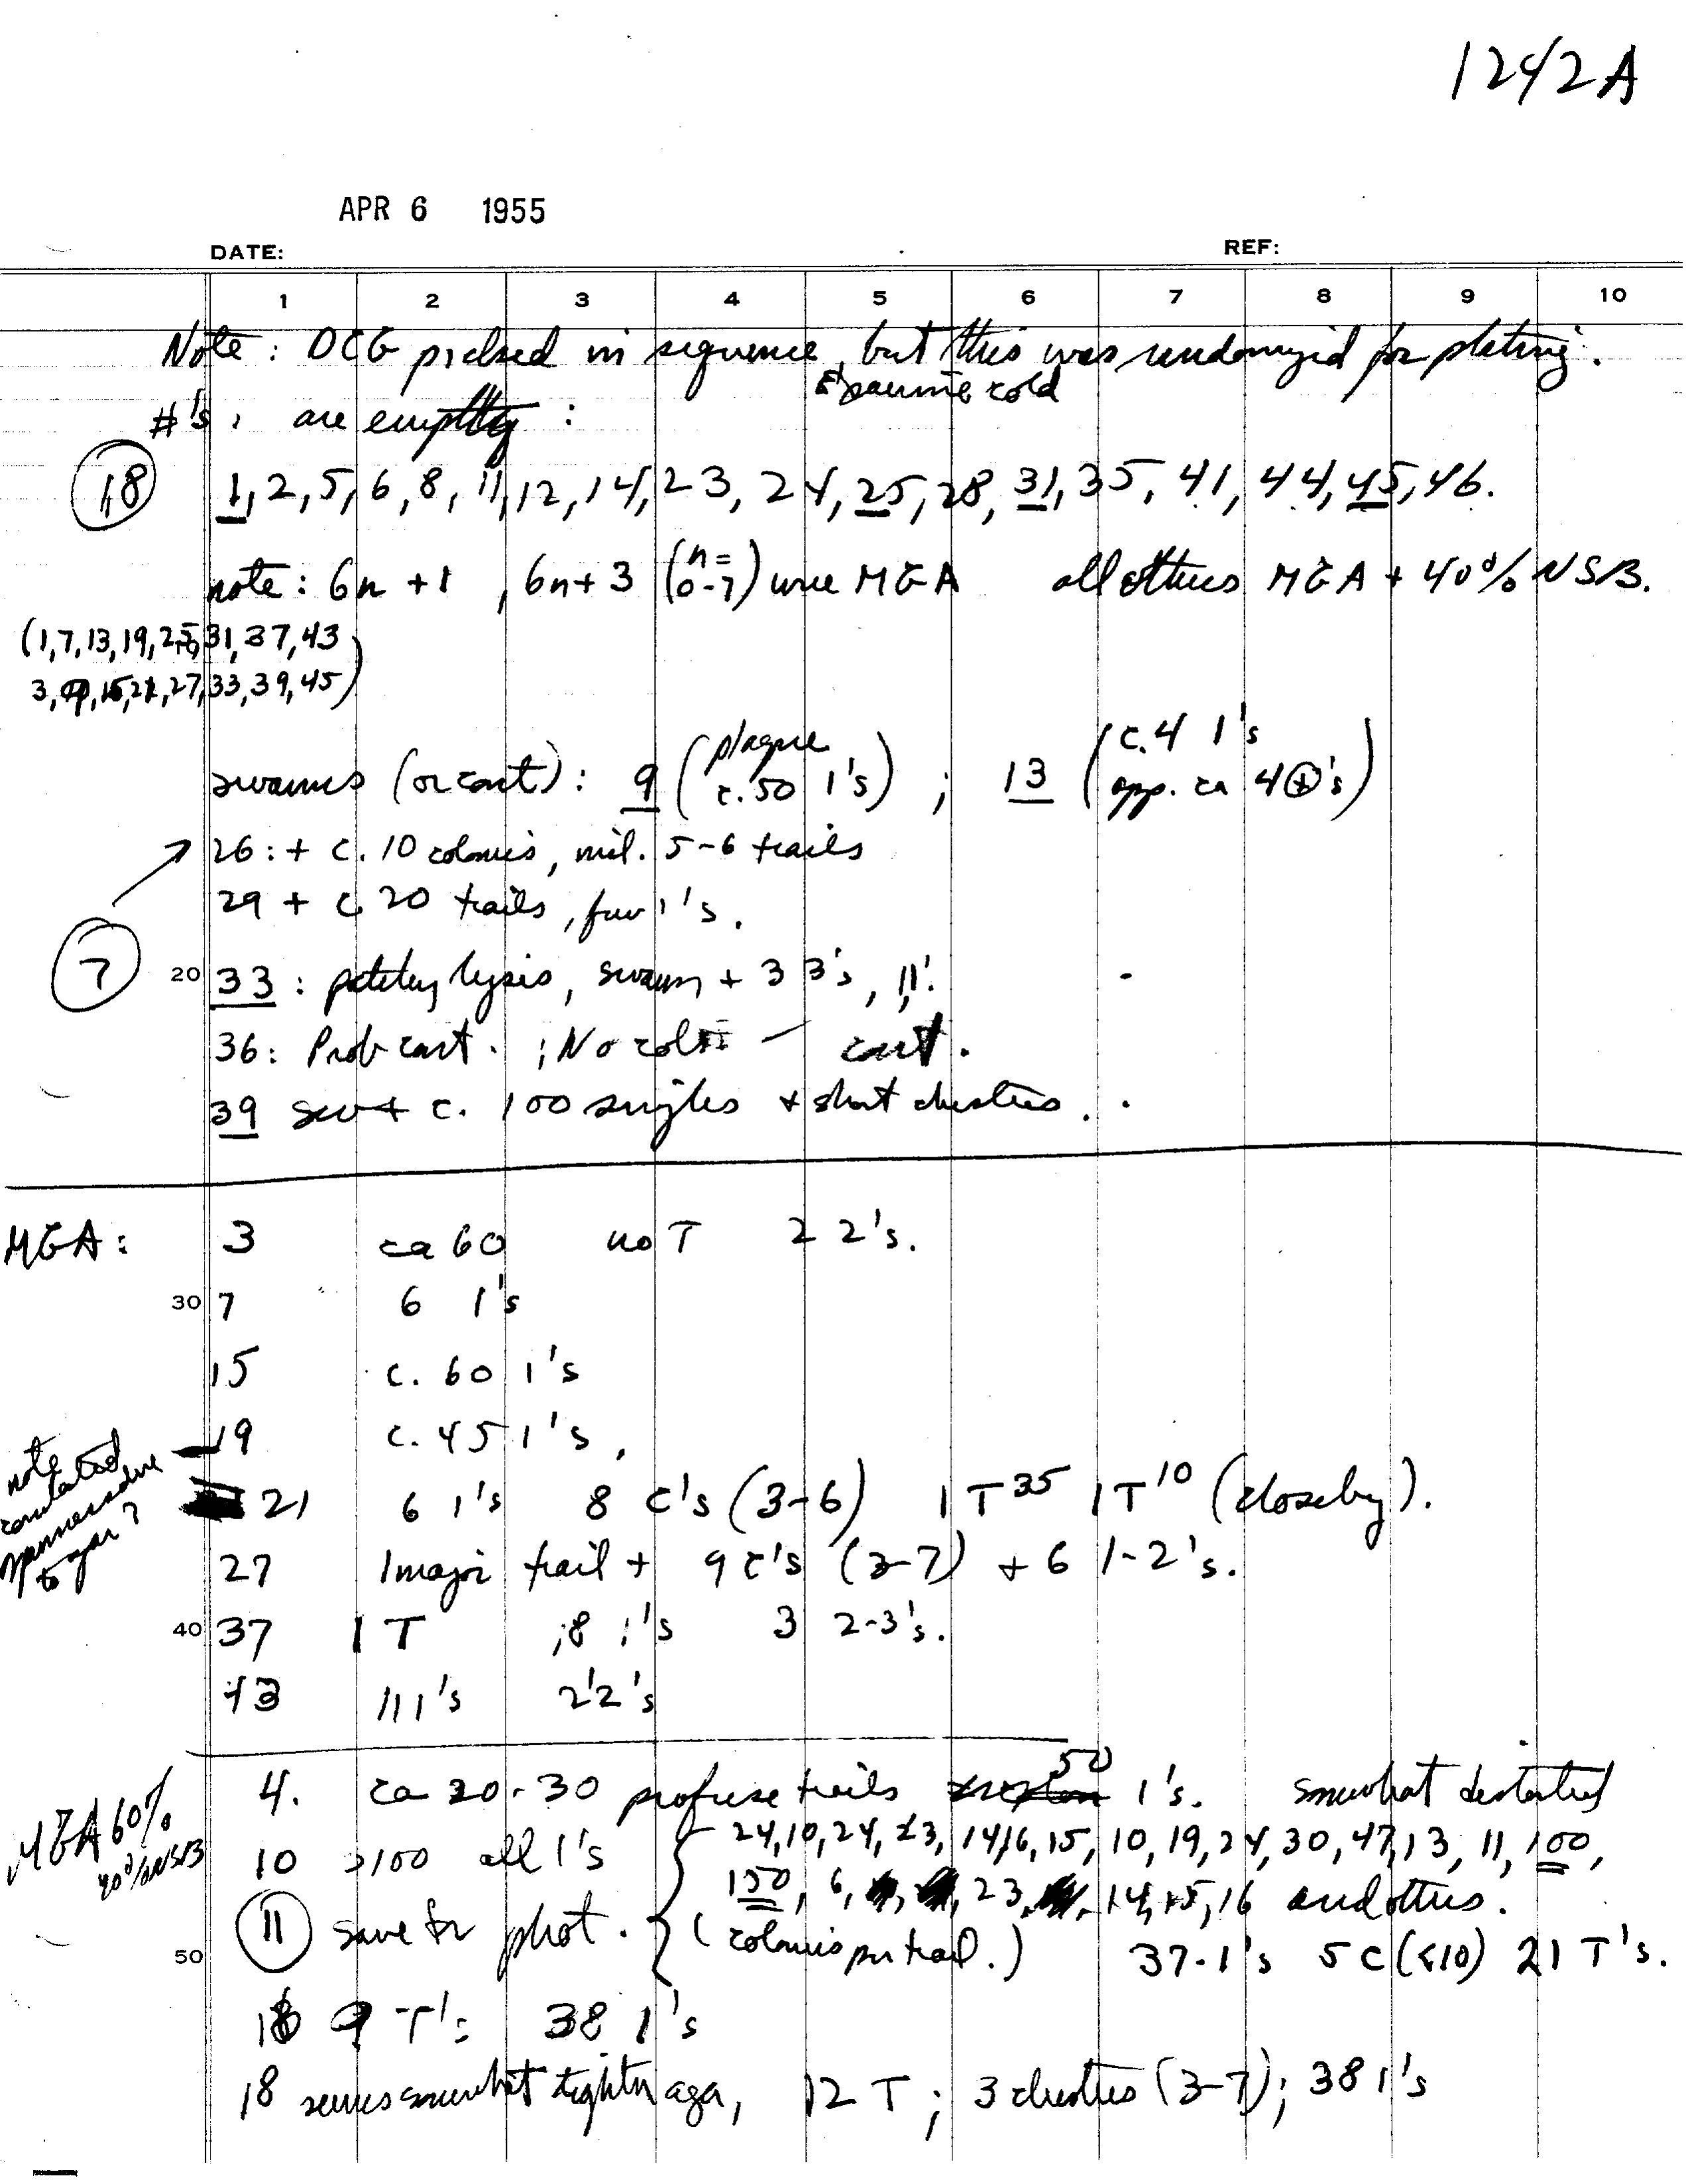 1242A
APR 6 1955
DATE: REF:
1 2 3 4 5 6 7 8 9 10
Note: DCG picked in sequence, but this was randomized for plating.
#'s, are empty: Examine cold
18 1, 2, 5, 6, 8, 11, 12, 14, 23, 24, 25, 28, 31, 35, 41, 44, 45, 46.
note: 6n + 1, 6n + 3 (n = 0-7) were MGA all others MGA + 40% NSB.
(1, 7, 13, 19, 25, 31, 37, 43
3, 9, 15, 21, 27, 33, 39, 45)
swarms (or cont): 9 (plaque c. 50 1's); 13 (c. 4 1's opp. ca 4 ⊕'s)
26: + c. 10 colonies, 5-6 trails
29 + c 20 trails, few 1's.
7
20 33: lysis, swarm + 3 3's, 11'.
36: Prob cont. ; No col cont.
39 sw + c. 100 singles + short clusters.
MGA: 3 ca 60 no T 2 2's.
30 7 6 1's
15 c. 60 1's
19 c. 45 1's,
note to agar?
21 6 1's 8 c's (3-6) 1 T35 1 T10 (closeby).
27 1 major trail + 9 c's (3-7) + 6 1-2's.
40 37 1 T 18 1's 3 2-3's.
43 11 1's 2 2's
MGA 60% 40% NSB
4. ca 20-30 profuse trails 50 1's. somewhat distorted
10 >100 all 1's { 24, 10, 24, 23, 14, 16, 15, 10, 19, 24, 30, 47, 13, 11, 100,
150, 6, 23, 14, 15, 16 and others.
11 save for phot. (colonies per trail.) 37-1's 5 c (<10) 21 T's.
50
16 9 T's 38 1's
18 seems somewhat tighter agar, 12 T; 3 clusters (3-7); 38 1's